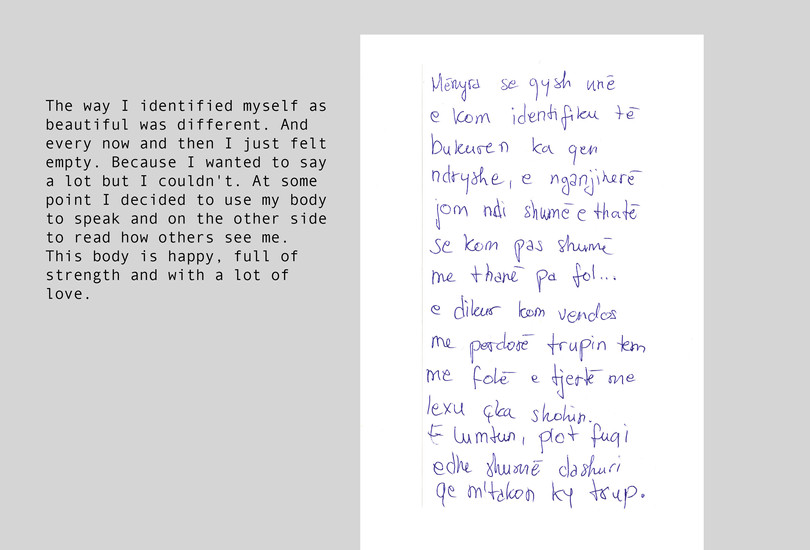 The way I identified myself as
beautiful was different. And
every now and then I just felt
empty. Because I wanted to say
a lot but I couldn't. At some
point I decided to use my body
to speak and on the other side
to read how others see me.
This body is happy, full of
strength and with a lot of
love.
Mënyra se qysh unë
e kom identifiku të
bukuren ka qen
ndryshe, e nganjiherë
jom ndi shumë e thatë
se kom pas shumë
me thanë pa fol...
e dikur kom vendos
me perdorë trupin tem
me folë e tjertë me
lexu çka shohin.
E lumtun, plot fuqi
edhe shumë dashuri
qe m'takon ky trup.